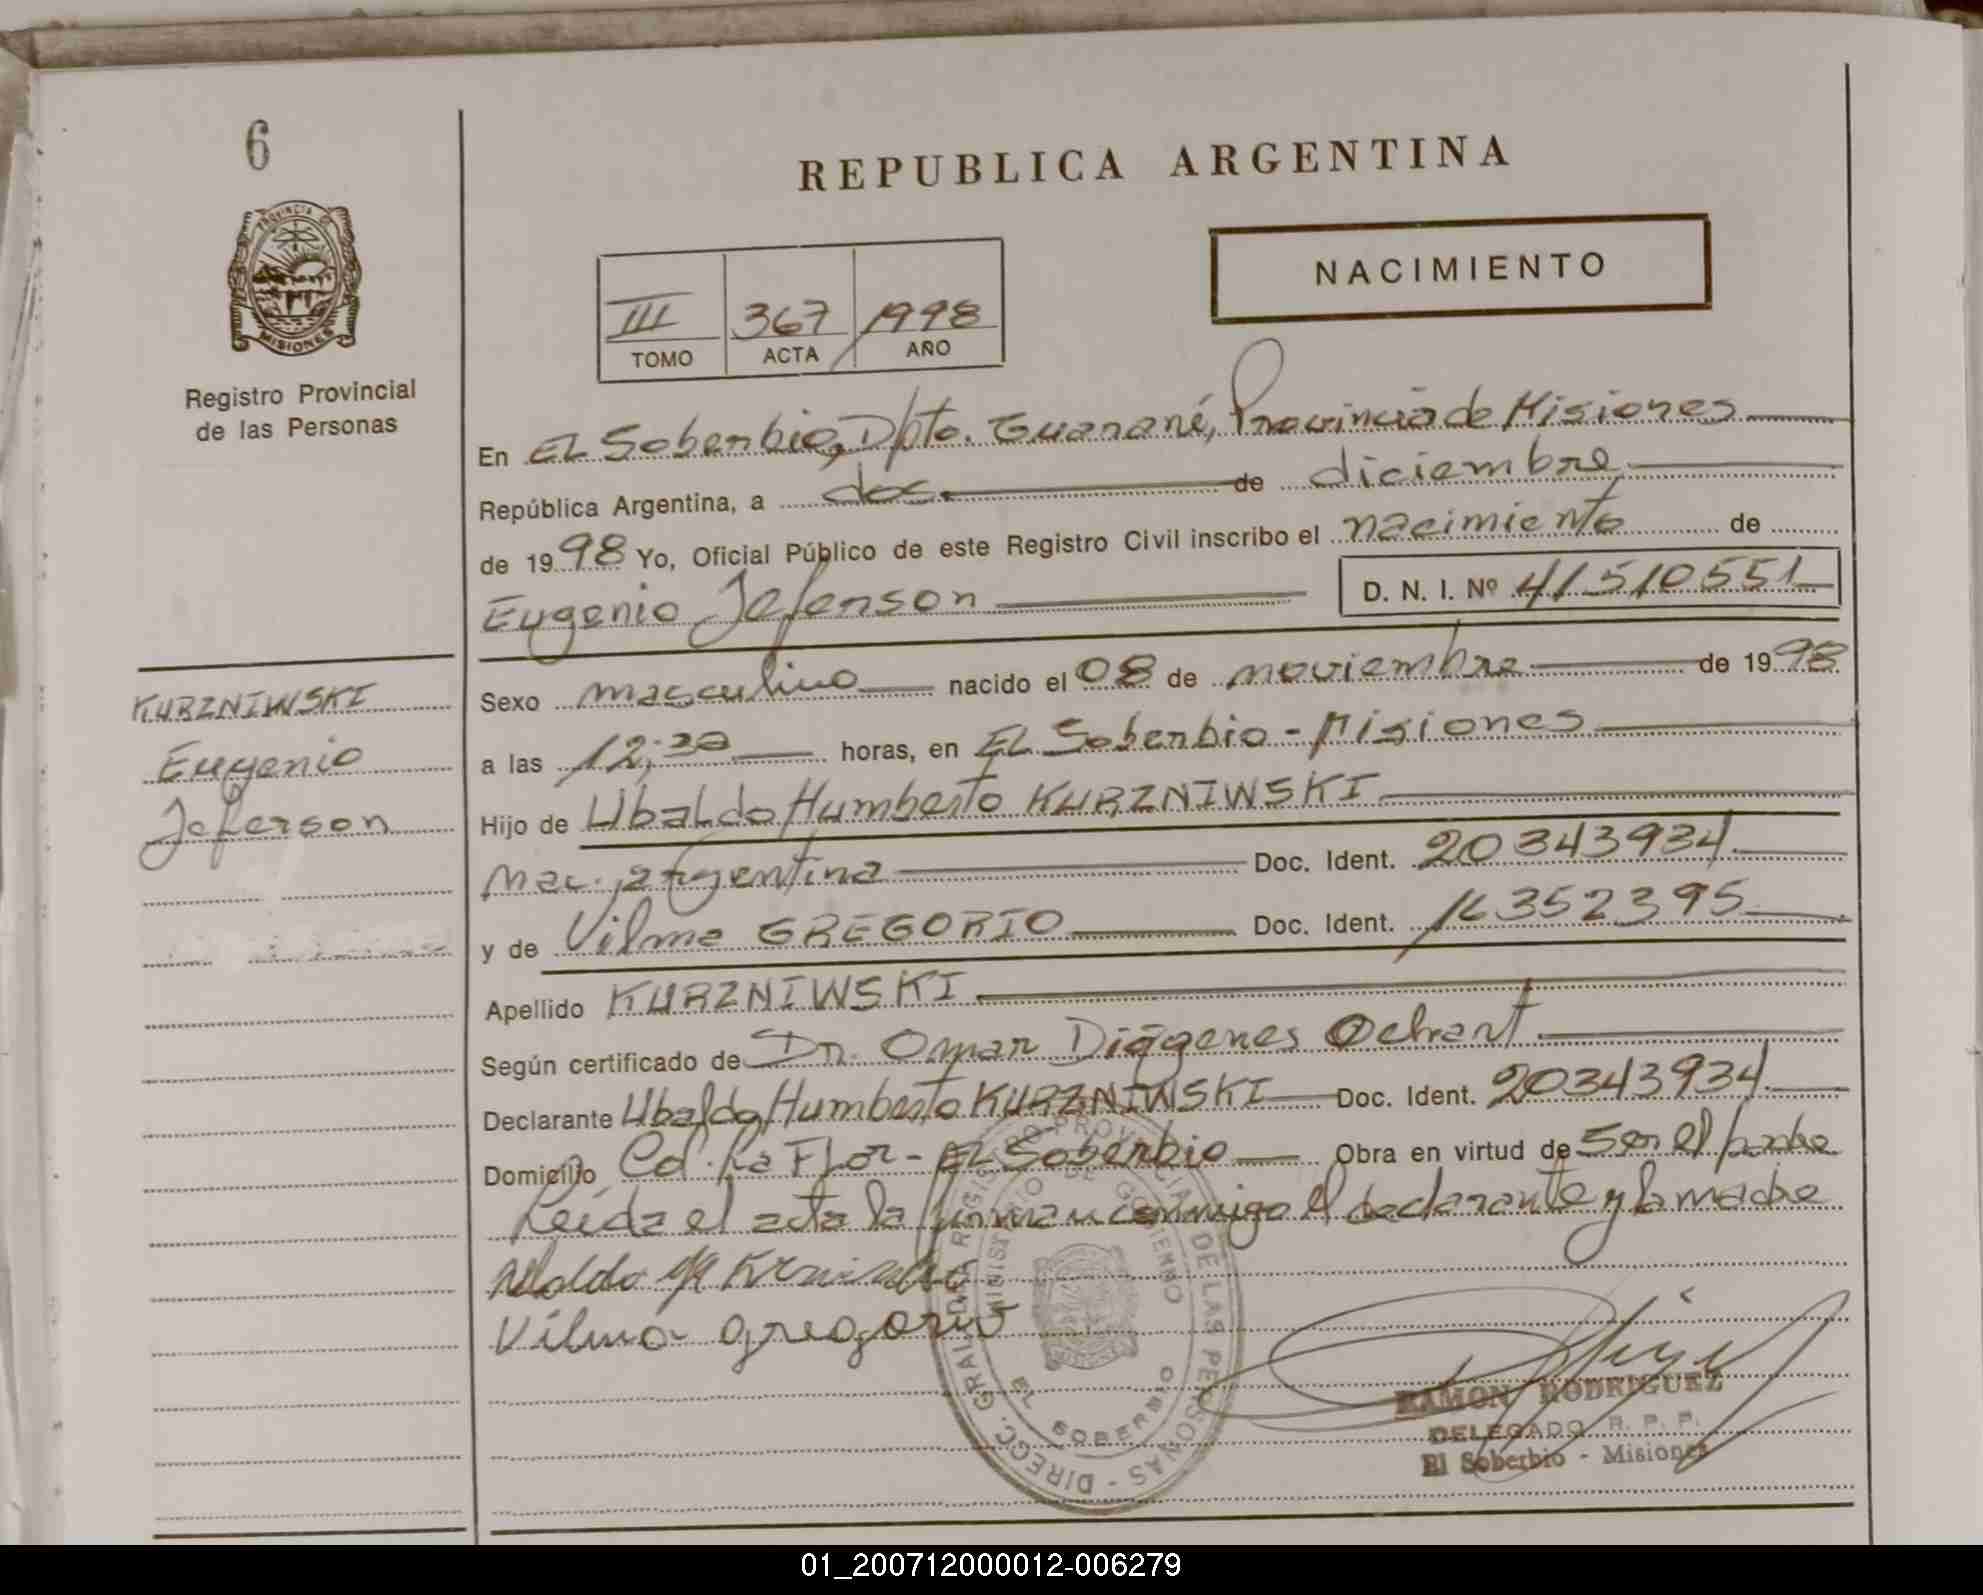 6
REPUBLICA ARGENTINA
PROVINCIA D
MISIONES
NACIMIENTO
III 367 1998
TOMO ACTA AÑO
Registro Provincial
de las Personas
En EL Soberbio, Dpto. Guaraní, Provincia de Misiones
República Argentina, a dos. de diciembre
de 1998 Yo, Oficial Público de este Registro Civil inscribo el nacimiento de
Eugenio Jeferson D. N. I. Nº 41510551
Sexo masculino nacido el 08 de noviembre de 1998
KURZNIWSKI
Eugenio
Jeferson
a las horas, en EL Soberbio - Misiones
Hijo de Ubaldo Humberto KURZNIWSKI
nac. argentina Doc. Ident. 20343934
y de Vilma GREGORIO Doc. Ident. 16352395
Apellido KURZNIWSKI
Según certificado de Dr. Omar Diógenes
Declarante Ubaldo Humberto KURZNIWSKI Doc. Ident. 20343934
Domicilio Col. La Flor - EL Soberbio Obra en virtud de Ser el padre
Leída el acta la firman conmigo el declarante y la madre
Vilma gregorio
DIRECC. GRAL. DEL REGISTRO PROVINCIAL DE LAS PERSONAS
MINISTERIO DE GOBIERNO
EL SOBERBIO
RAMON RODRIGUEZ
DELEGADO R. P. P.
El Soberbio - Misiones
01_200712000012-006279